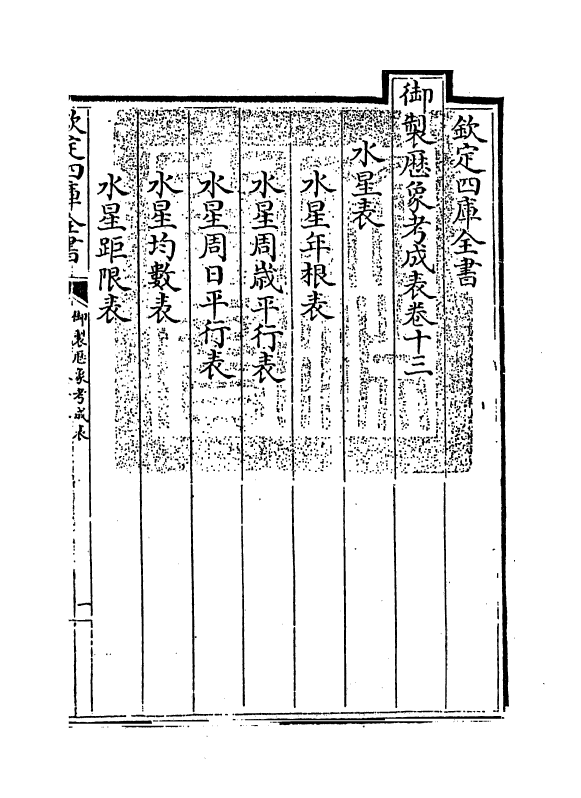 欽定四庫全書
御製厯象考成表卷十三
水星表
水星年根表
水星周歳平行表
水星周日平行表
水星均數表
水星距限表
欽定四庫全書
御製厯象考成表
一